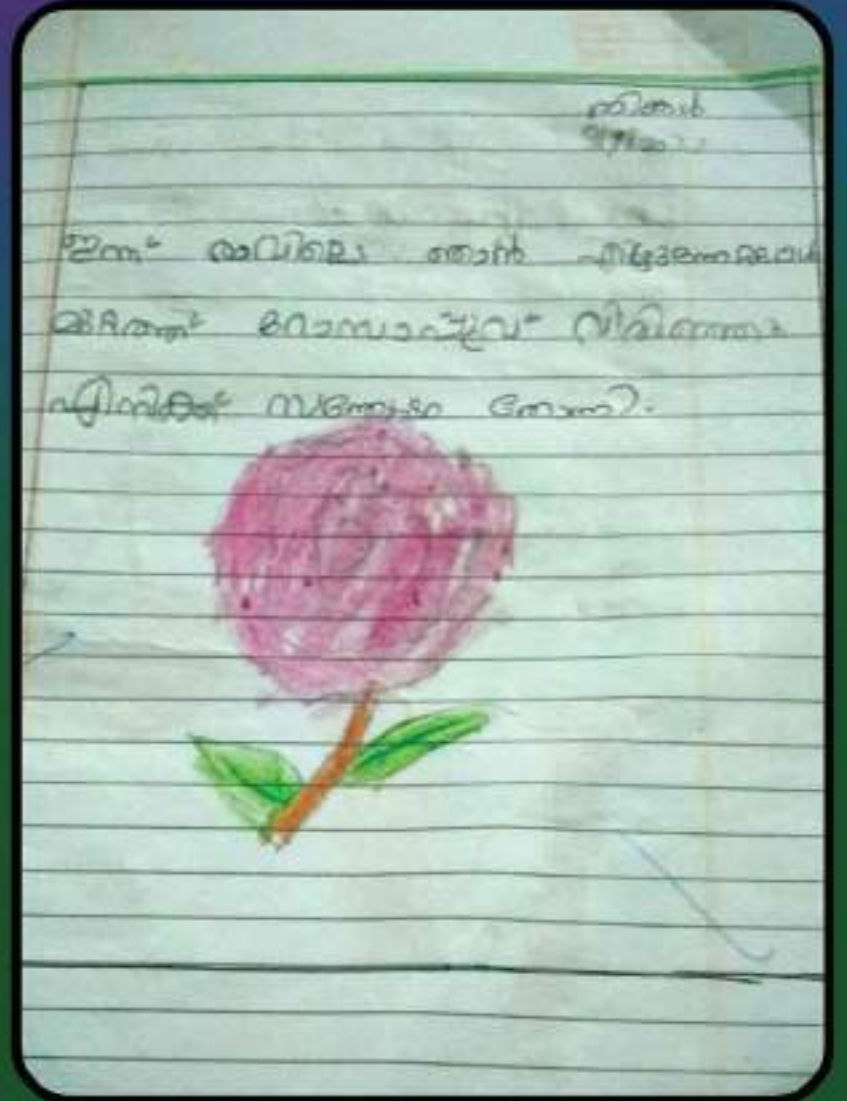 തിങ്കൾ
ഇന്ന് രാവിലെ ഞാൻ
മുറ്റത്ത് റോസാപ്പൂവ് വിരിഞ്ഞു
എനിക്ക് സന്തോഷം തോന്നി.